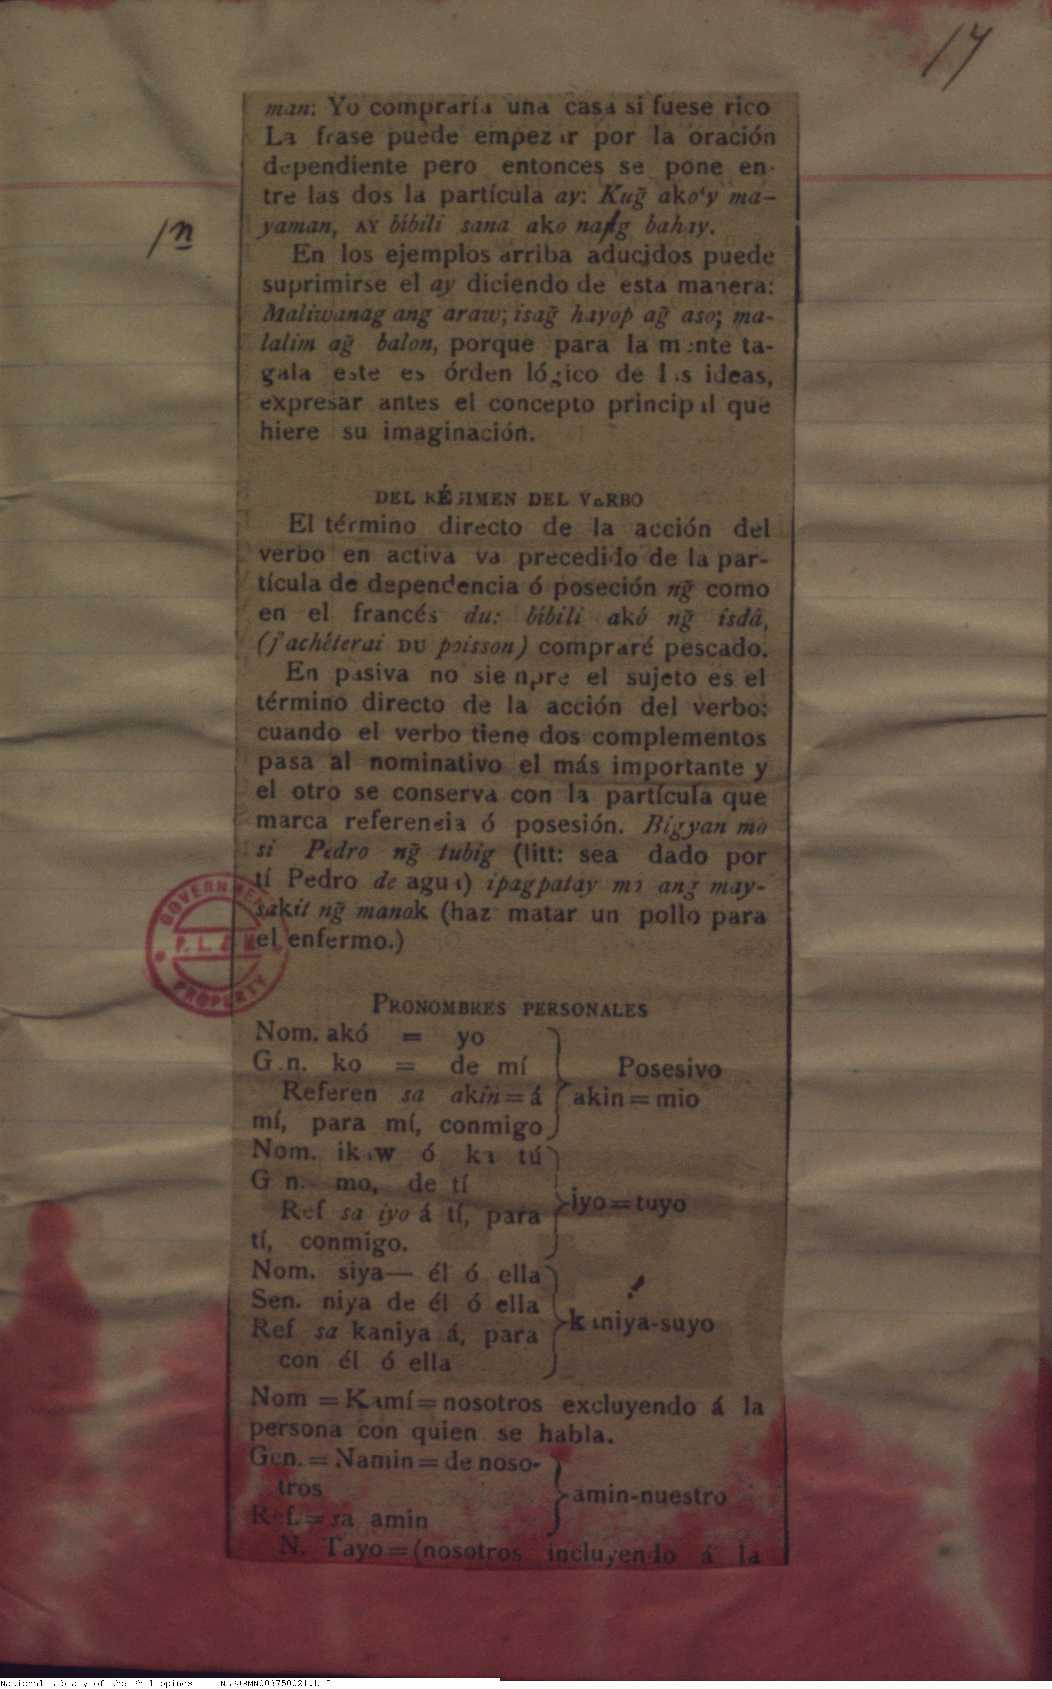 17
man: Yo compraría una casa si fuese rico
La frase puede empezar por la oración
dependiente pero entonces se pone en-
tre las dos la partícula ay: Kug̃ ako'y ma-
yaman, AY bibili sana ako nang bahay.
/n
En los ejemplos arriba aducidos puede
suprimirse el ay diciendo de esta manera:
Maliwanag ang araw; isag̃ hayop ag̃ aso; ma-
lalim ag̃ balon, porque para la mente ta-
gala este es órden lógico de las ideas,
expresar antes el concepto principal que
hiere su imaginación.
DEL RÉJIMEN DEL VERBO
El término directo de la acción del
verbo en activa va precedido de la par-
tícula de dependencia ó poseción ng̃ como
en el francés du: bibili akó ng̃ isdâ,
(j'achéterai DU poisson) compraré pescado.
En pasiva no siempre el sujeto es el
término directo de la acción del verbo:
cuando el verbo tiene dos complementos
pasa al nominativo el más importante y
el otro se conserva con la partícula que
marca referensia ó posesión. Bigyan mo
si Pedro ng̃ tubig (litt: sea dado por
tí Pedro de agua) ipagpatay mo ang may-
sakit ng̃ manok (haz matar un pollo para
el enfermo.)
GOVERNMENT
P. L. & M.
PROPERTY
PRONOMBRES PERSONALES
Nom. akó = yo
Gen. ko = de mí Posesivo
Referen sa akin = á akin = mio
mí, para mí, conmigo
Nom. ikaw ó ka tú
Gen. mo, de tí
Ref sa iyo á tí, para iyo = tuyo
tí, conmigo.
Nom. siya— él ó ella
Sen. niya de él ó ella
Ref sa kaniya á, para kaniya-suyo
con él ó ella
Nom = Kamí = nosotros excluyendo á la
persona con quien se habla.
Gen. = Namin = de noso-
tros amin-nuestro
Ref. = sa amin
N. Tayo = (nosotros incluyendo á la
National Library of the Philippines